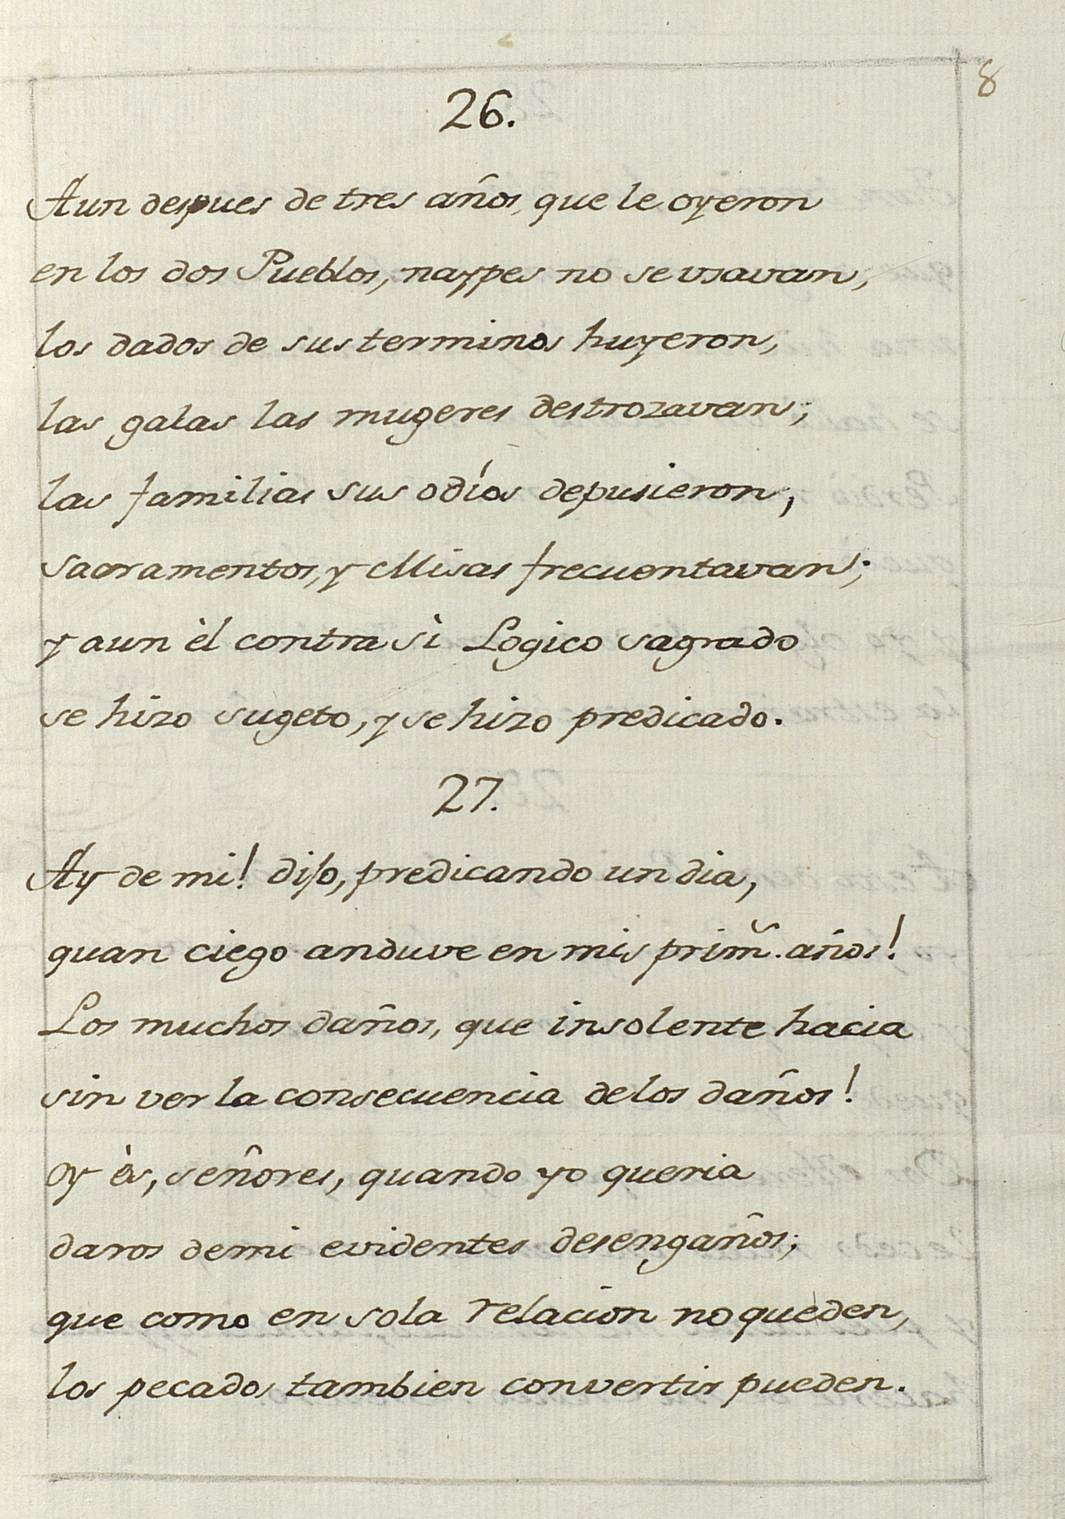 8
26.
Aun despues de tres años, que le oyeron
en los dos Pueblos, naypes no se vsavan,
los dados de sus terminos huyeron,
las galas las mugeres destrozavan;
las familias sus odíos depusieron,
sacramentos, y Misas frecuentavan;
y aun èl contra sì Logico sagrado
se hizo sugeto, y se hizo predicado.
27.
Ay de mi! dijo, predicando un dia,
quan ciego anduve en mis prim.ˢ años!
Los muchos daños, que insolente hacia
sin ver la consecuencia de los daños!
oy ès, señores, quando yo queria
daros de mi evidentes desengaños;
que como en sola relacion no queden,
los pecados tambien convertir pueden.